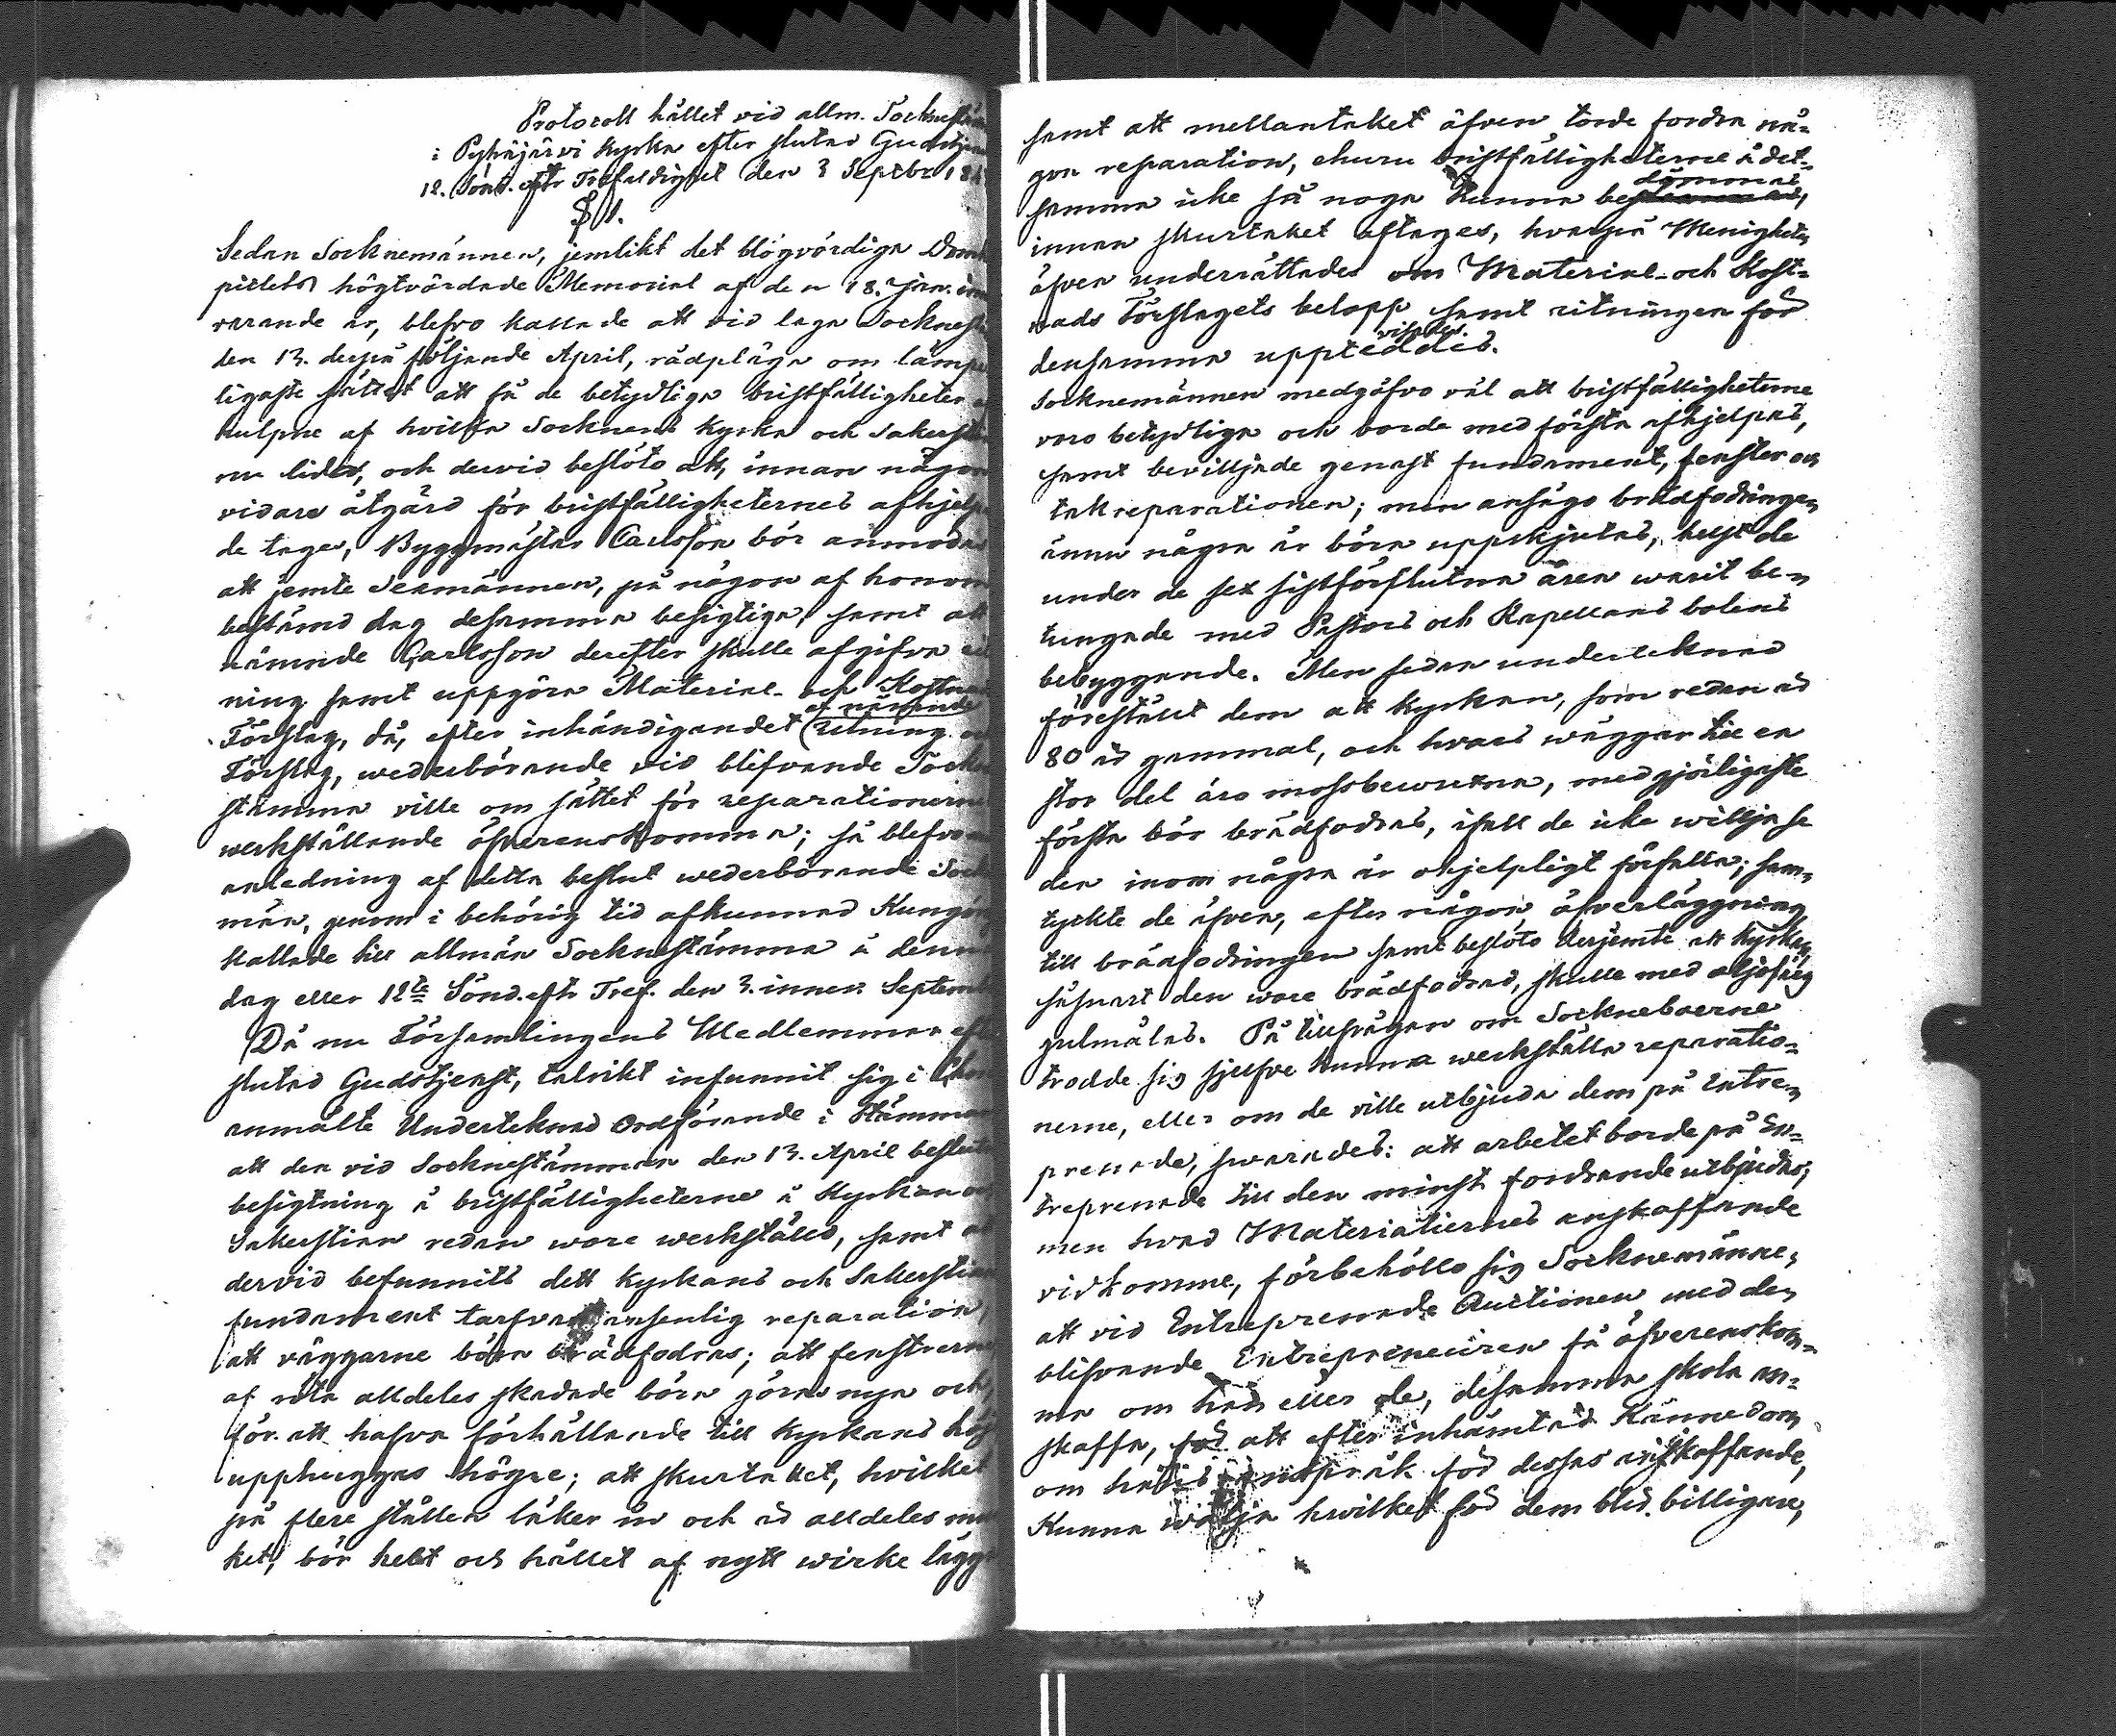 Protocoll hållet vid allm. Sockneställ
i Pyhäjärvi Kyrka efter slutad Gudstjen
12. Sönd. eftr Trefaldighet den 3 Septbr 18
§ 1.
Sedan Socknemännen, jemlikt det Högvördiga Dom
pitlets högtvördade Memorial af den 18. Jan. in
varande år, blefvo kallade att vid laga Sockness
den 13. derpå följande April, rådpläga om lämpe
ligaste sättet att få de betydliga bristfälligheter
hulpne af hvilka Socknens Kyrka och Sakerst
nu lider, och dervid beslöto att, innan någon
vidare åtgärd för bristfälligheternes afhjelp
de tages, Byggmästar Carlsson bör anmodas
att jemte Sexmännen, på någon af honom
bestämd dag desamma besigtiga, samt att
nämnde Carlsson derefter skulle afgifva rit
ning samt uppgöra Material- och Kostnad
Förslag, då, efter inhändigandet af nämnde ritning o
Förslag, wederbörande vid blifvande Sockne
stämma ville om sättet för reparationerne
werkställande öfverenskomma; så blefvo
anledning af detta beslut wederbörande Sock
män, genom i behörig tid afkunnad Kungör
kallade till allmän Socknestämma å denna
dag eller 12te Sönd. eftr Tref. den 3. innev. Septemb
Då nu Församlingens Medlemmar eft
slutad Gudstjenst, talrikt infunnit sig i
anmälte Undertecknad Ordförande i Stämman
att den vid Socknestämman den 13. April beslut
besigtning å bristfälligheterne å Kyrkan o
Sakerstian redan wore werkställd, samt a
dervid befunnits dett Kyrkans och Sakersti
fundament tarfva ansenlig reparation,
att väggarne böra brädfodras; att fenstrerne
af röta alldeles skadade böra göras nya och
för att hafva förhållande till Kyrkans höj
upphuggas högre; att skurtaket, hvilket
på flere ställen läker in och är alldeles mur
ket, bör helt och hållet af nytt wirke lägg
samt att mellantaket äfven torde fordra nå-
gon reparation, ehuru bristfälligheterne å det-
samma icke så noga kunna bedömmas,
innan skurtaket aftages, hvarpå Menigheten
äfven underrättades om Material- och Kost-
nads Förslagets belopp samt ritningen för
densamma uppvisades.
Socknemännen medgåfvo väl att bristfälligheterne
voro betydliga och borde med första afhjelpas,
samt bevilljade genast fundament, fenster och
tak reparationen; men ansågo brädfodringen
ännu några år böra uppskjutas, helst de
under de sex sistförflutna åren warit be-
tungade med Pastors och Kapellans bolens
bebyggande. Men sedan undertecknad
föreställt dem att Kyrkan, som redan är
80 år gammal, och hvars wäggar till en
stor del äro mossbewuxna, medgjörligaste
första bör brädfodras, ifall de icke willja se
den inom några år ohjelpligt förfalla; sam-
tyckte de äfven, efter någon öfverläggning
till brädfodringen samt beslöto derjemte att Kyrkan
såsnart den wore brädfodrad, skulle med oljefärg
gulmålas. På tillfrågan om Socknebaerne
trodde sig sjelfve kunna werkställa reparatio-
nerne, eller om de ville utbjuda dem på Entre-
prenade, swarades: att arbetet borde på En-
treprenade till den minst fordrande utbjudas;
men hvad Materialiernes anskaffande
vidkomme, förbehöllo sig Socknemännen
att vid Entreprenade Auctionen med den
blifvande Entrepreneuren få öfverenskom-
ma om han eller de, desamma skola an-
skaffa, för att efter inhämtad Kännedom
om hans anspråk för dessas anskaffande,
Kunna wälja hwilket för dem blir billigare,